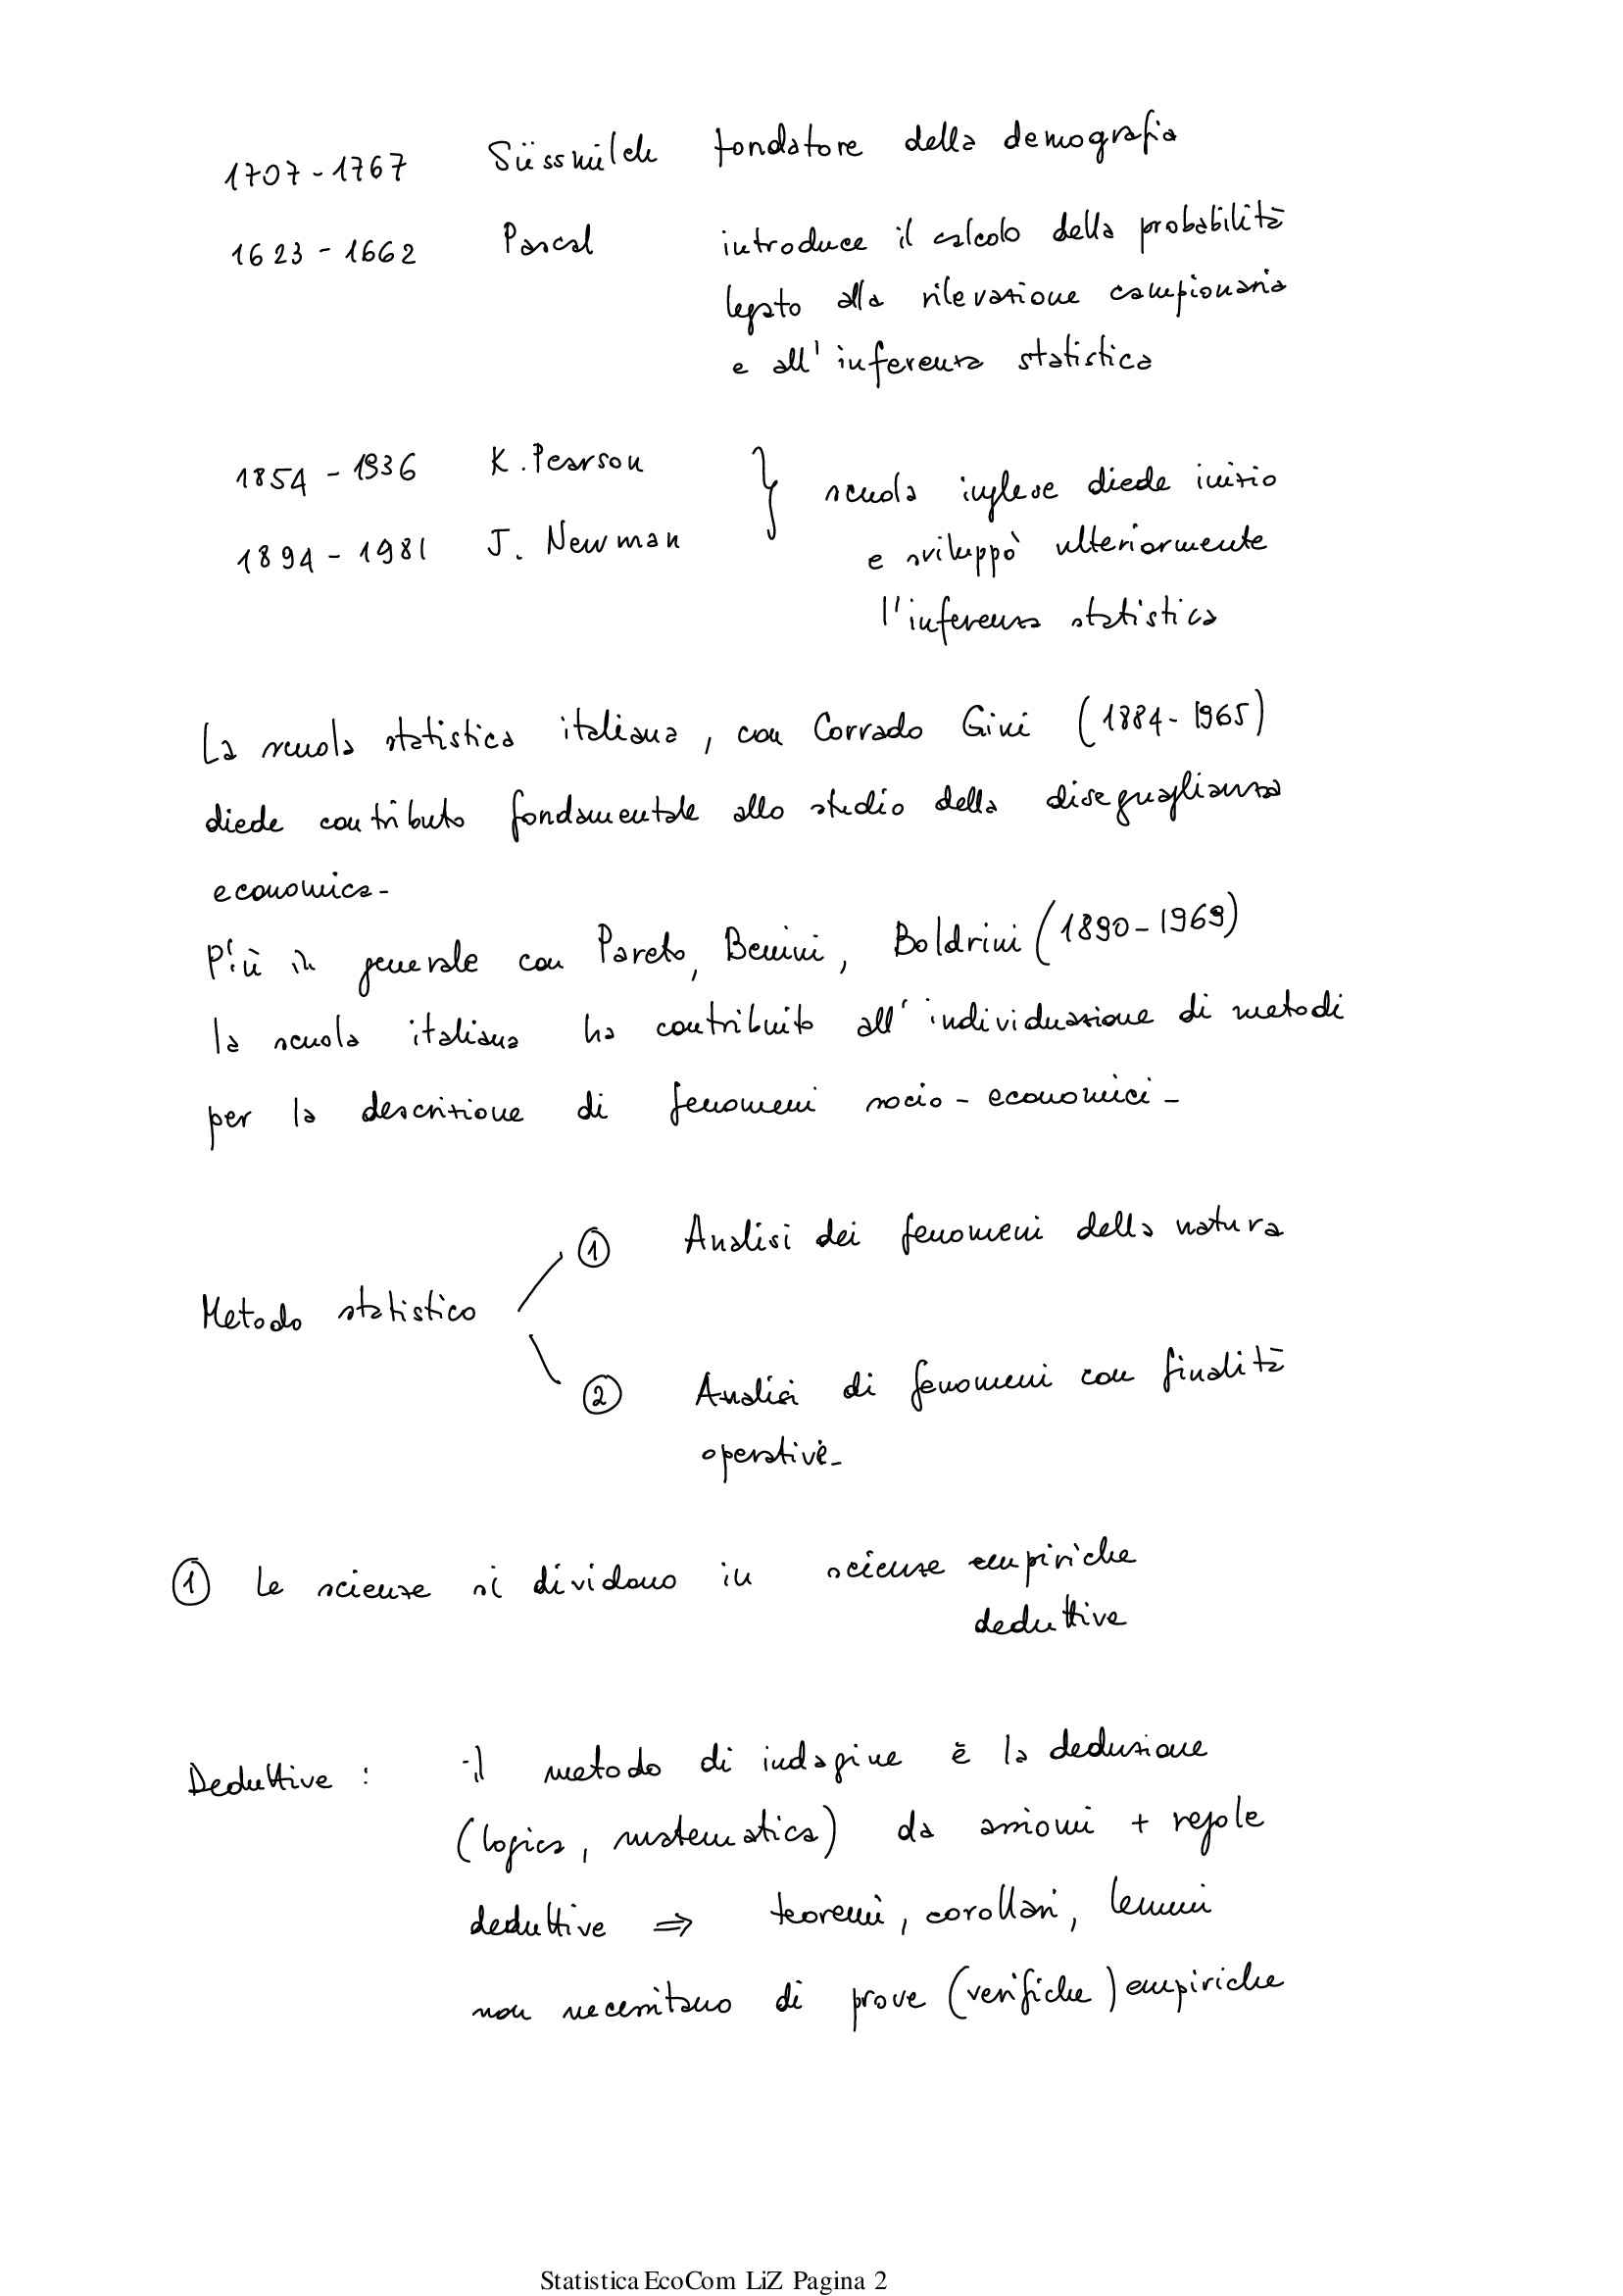 1707-1767 Süssmilch fondatore della demografia
1623-1662 Pascal introduce il calcolo della probabilità
legato alla rilevazione campionaria
e all'inferenza statistica
1854-1936 K. Pearson } scuola inglese diede inizio
1894-1981 J. Newman e sviluppò ulteriormente
l'inferenza statistica
La scuola statistica italiana, con Corrado Gini (1884-1965)
diede contributo fondamentale allo studio della diseguaglianza
economica-
Più in generale con Pareto, Benini, Boldrini (1890-1969)
la scuola italiana ha contribuito all'individuazione di metodi
per la descrizione di fenomeni socio-economici-
① Analisi dei fenomeni della natura
Metodo statistico
② Analisi di fenomeni con finalità
operative-
① Le scienze si dividono in scienze empiriche
deduttive
Deduttive : il metodo di indagine è la deduzione
(logica, matematica) da assiomi + regole
deduttive ⇒ teoremi, corollari, lemmi
non necessitano di prove (verifiche) empiriche
Statistica EcoCom LiZ Pagina 2